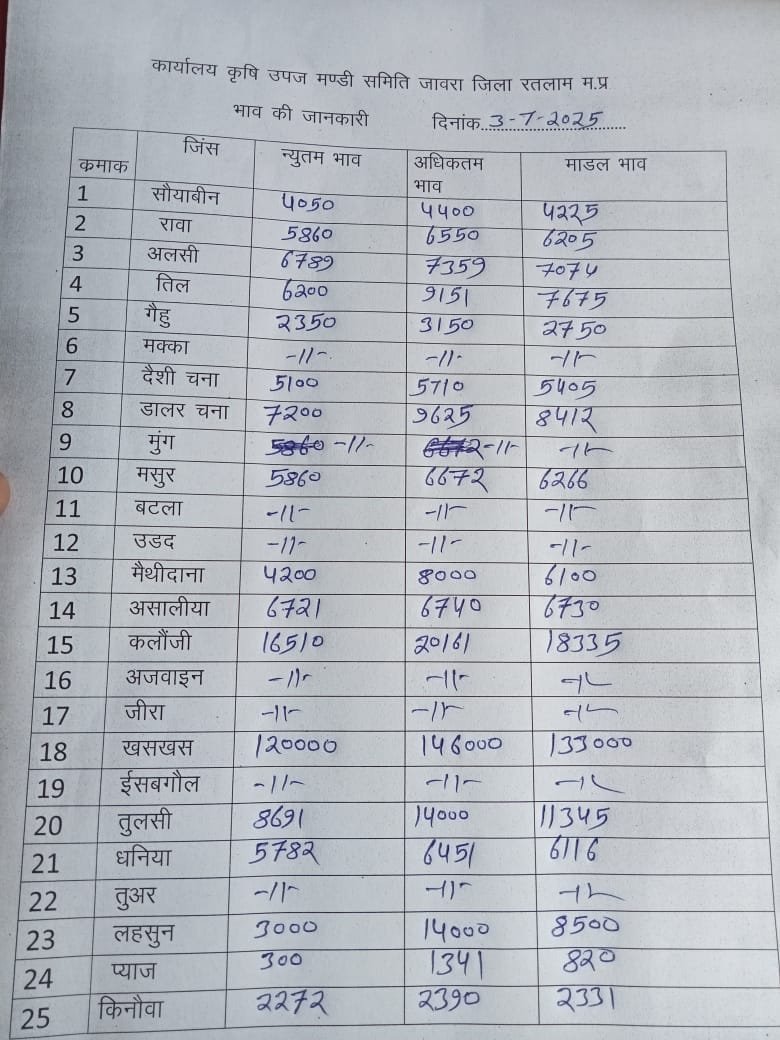 कार्यालय कृषि उपज मण्डी समिति जावरा जिला रतलाम म.प्र
भाव की जानकारी दिनांक 3-7-2025
कमाक जिंस न्युतम भाव अधिकतम भाव माडल भाव
1 सौयाबीन 4050 4400 4225
2 रावा 5860 6550 6205
3 अलसी 6789 7359 7074
4 तिल 6200 9151 7675
5 गैहु 2350 3150 2750
6 मक्का -11- -11- -11-
7 दैशी चना 5100 5710 5405
8 डालर चना 7200 9625 8412
9 मुंग -11- -11- -11-
10 मसुर 5860 6672 6266
11 बटला -11- -11- -11-
12 उडद -11- -11- -11-
13 मैथीदाना 4200 8000 6100
14 असालीया 6721 6740 6730
15 कलौंजी 16510 20161 18335
16 अजवाइन -11- -11- -11-
17 जीरा -11- -11- -11-
18 खसखस 120000 146000 133000
19 ईसबगौल -11- -11- -11-
20 तुलसी 8691 14000 11345
21 धनिया 5782 6451 6116
22 तुअर -11- -11- -11-
23 लहसुन 3000 14000 8500
24 प्याज 300 1341 820
25 किनौवा 2272 2390 2331